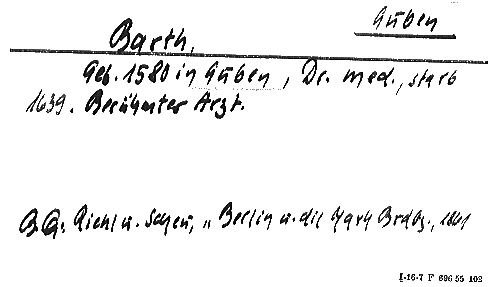 Guben
Barth,
Geb. 1580 in Guben, Dr. med., starb
1639. Berühmter Arzt.
B.Q: Riehl u. Scheu, „Berlin u. die Mark Brdbg., 1861
I-16-7 F 696 55 102